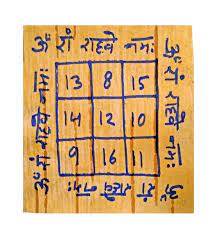 ॐ रां राहवे नमः
ॐ रां राहवे नमः
13 8 15
14 12 10
9 16 11
ॐ रां राहवे नमः
ॐ रां राहवे नमः